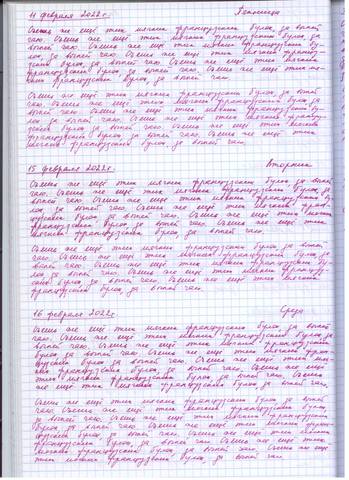 11 февраля 2022г. Пятница
Съешь же ещё этих мягких французских булок, да выпей
чаю. Съешь же ещё этих мягких французских булок, да
выпей чаю. Съешь же ещё этих мягких французских бу-
лок, да выпей чаю. Съешь же ещё этих мягких француз-
ских булок, да выпей чаю. Съешь же ещё этих мягких
французских булок, да выпей чаю. Съешь же ещё этих мяг-
ких французских булок, да выпей чаю.
Съешь же ещё этих мягких французских булок, да вы-
пей чаю. Съешь же ещё этих мягких французских бу-
лок, да выпей чаю. Съешь же ещё этих мягких францу-
зских булок, да выпей чаю. Съешь же ещё этих
мягких французских булок, да выпей чаю.
15 февраля 2022г. Вторник
Съешь же ещё этих мягких французских булок, да выпей
чаю. Съешь же ещё этих мягких французских булок, да
выпей чаю. Съешь же ещё этих мягких французских бу-
лок, да выпей чаю. Съешь же ещё этих мягких фран-
цузских булок, да выпей чаю. Съешь же ещё этих мягких
французских булок, да выпей чаю. Съешь же ещё этих
мягких французских булок, да выпей чаю.
Съешь же ещё этих мягких французских булок, да
выпей чаю. Съешь же ещё этих мягких французских бу-
лок, да выпей чаю. Съешь же ещё этих мягких француз-
ских булок, да выпей чаю. Съешь же ещё этих мягких
французских булок, да выпей чаю.
16 февраля 2022г. Среда
Съешь же ещё этих мягких французских булок, да выпей
чаю. Съешь же ещё этих мягких французских булок, да
выпей чаю. Съешь же ещё этих мягких французских
булок, да выпей чаю. Съешь же ещё этих мягких фран-
цузских булок, да выпей чаю. Съешь же ещё этих мяг-
ких французских булок, да выпей чаю. Съешь же ещё
этих мягких французских булок, да выпей чаю. Съешь
же ещё этих мягких французских булок, да выпей чаю.
Съешь же ещё этих мягких французских булок, да выпей
чаю. Съешь же ещё этих мягких французских булок,
да выпей чаю. Съешь же ещё этих мягких французских
булок, да выпей чаю. Съешь же ещё этих мягких фран-
цузских булок, да выпей чаю. Съешь же ещё этих мягких
французских булок, да выпей чаю. Съешь же ещё этих
мягких французских булок, да выпей чаю. Съешь же ещё
этих мягких французских булок, да выпей чаю.